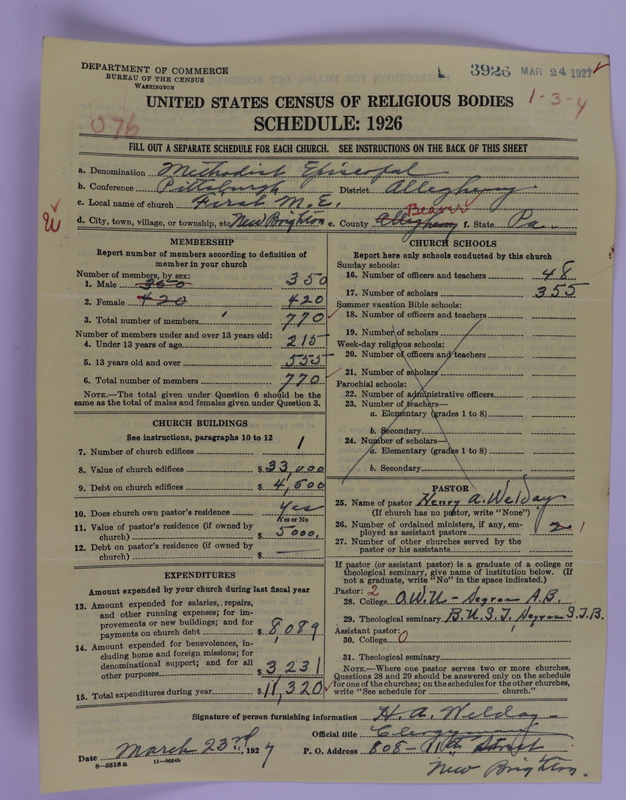 DEPARTMENT OF COMMERCE
BUREAU OF THE CENSUS
WASHINGTON
3926 MAR 24 1927
1-3-4
UNITED STATES CENSUS OF RELIGIOUS BODIES
SCHEDULE: 1926
076
FILL OUT A SEPARATE SCHEDULE FOR EACH CHURCH. SEE INSTRUCTIONS ON THE BACK OF THIS SHEET
a. Denomination Methodist Episcopal
b. Conference Pittsburgh District Allegheny
c. Local name of church First M.E.
d. City, town, village, or township, etc. New Brighton e. County Allegheny Beaver f. State Pa.
MEMBERSHIP
Report number of members according to definition of
member in your church
Number of members, by sex:
1. Male 350 350
2. Female 420 420
3. Total number of members 770
Number of members under and over 13 years old:
4. Under 13 years of age 215
5. 13 years old and over 555
6. Total number of members 770
NOTE.—The total given under Question 6 should be the
same as the total of males and females given under Question 3.
CHURCH BUILDINGS
See instructions, paragraphs 10 to 12
7. Number of church edifices 1
8. Value of church edifices $33,000
9. Debt on church edifices $4,500
10. Does church own pastor's residence yes
Yes or No
11. Value of pastor's residence (if owned by
church) $5000.
12. Debt on pastor's residence (if owned by
church) $
EXPENDITURES
Amount expended by your church during last fiscal year
13. Amount expended for salaries, repairs,
and other running expenses; for im-
provements or new buildings; and for
payments on church debt $8,089
14. Amount expended for benevolences, in-
cluding home and foreign missions; for
denominational support; and for all
other purposes $3231
15. Total expenditures during year $11,320
CHURCH SCHOOLS
Report here only schools conducted by this church
Sunday schools:
16. Number of officers and teachers 48
17. Number of scholars 355
Summer vacation Bible schools:
18. Number of officers and teachers
19. Number of scholars
Week-day religious schools:
20. Number of officers and teachers
21. Number of scholars
Parochial schools:
22. Number of administrative officers
23. Number of teachers—
a. Elementary (grades 1 to 8)
b. Secondary
24. Number of scholars—
a. Elementary (grades 1 to 8)
b. Secondary
PASTOR
25. Name of pastor Henry A. Welday
(If church has no pastor, write "None")
26. Number of ordained ministers, if any, em-
ployed as assistant pastors
27. Number of other churches served by the
pastor or his assistants
If pastor (or assistant pastor) is a graduate of a college or
theological seminary, give name of institution below. (If
not a graduate, write "No" in the space indicated.)
Pastor: 2
28. College O.W.U - Degree A.B.
29. Theological seminary B.U.S.T. Degree S.T.B.
Assistant pastor:
30. College 0
31. Theological seminary
NOTE.—Where one pastor serves two or more churches,
Questions 28 and 29 should be answered only on the schedule
for one of the churches; on the schedules for the other churches,
write "See schedule for church."
Signature of person furnishing information H. A. Welday
Official title Clergy
Date March 23rd, 1927 P. O. Address 808 - 11th Street
8—5518a 11—9084b New Brighton.